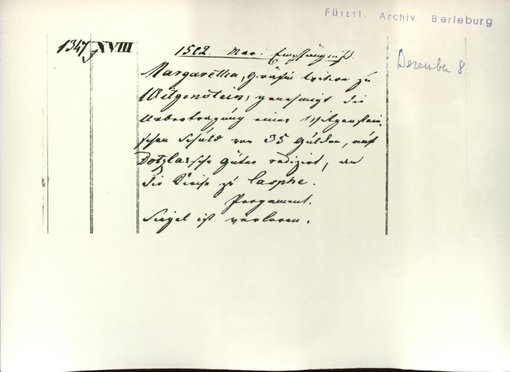 Fürstl. Archiv Berleburg
1347 XVIII
1502 Mar: Empfängniß
Dezember 8
Margaretha, Gräfin Witwe zu
Witgenstein, genehmigt die
Uebertragung einer Witgenstein,
schen Schuld von 35 Gulden, auf
Dotzlarsche Güter radizirt, an
die Kirche zu Laasphe.
Pergament.
Siegel ist verloren.